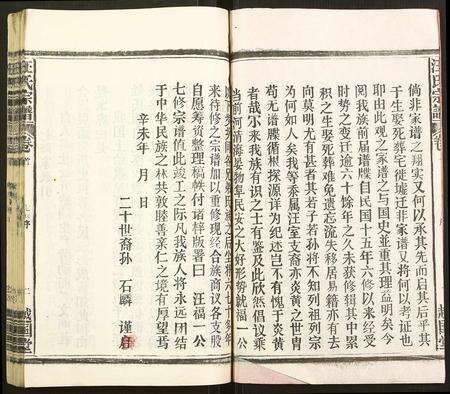 汪氏宗譜
卷首
倘非家谱之翔实又何以承其先而启其后乎其
于生娶死葬宅徒墟迁非家谱又将何以考证也
耶由此观之家谱之与国史並重其理益明矣今
阅我族前届谱牒自民国十五年六修以来经受
时势之变迁逾六十馀年之久未获修辑其中累
积之生娶死葬难免遗忘流失移居易籍亦有去
向莫明尤有甚者其若子若孙将不知列祖列宗
为何如人矣我等忝属汪室支裔亦炎黄之世胄
苟无谱牒循根探源详为纪述岂不有愧于炎黄
者哉尔来我族有识之士有鉴及此欣然倡议乘
当前河清海晏物阜民安之大好形势就福一公
来待修之宗谱加以重修现经合族商议各支股
自愿筹资整理稿帙付诸梓版署曰 汪福一公
七修宗谱值此竣工之际凡我族人将永远团结
于中华民族之林共敦睦善亲仁之境有厚望焉
二十世裔孙 石麟 谨启
辛未年 月 日
越国堂
汪氏宗譜
卷首
越国堂